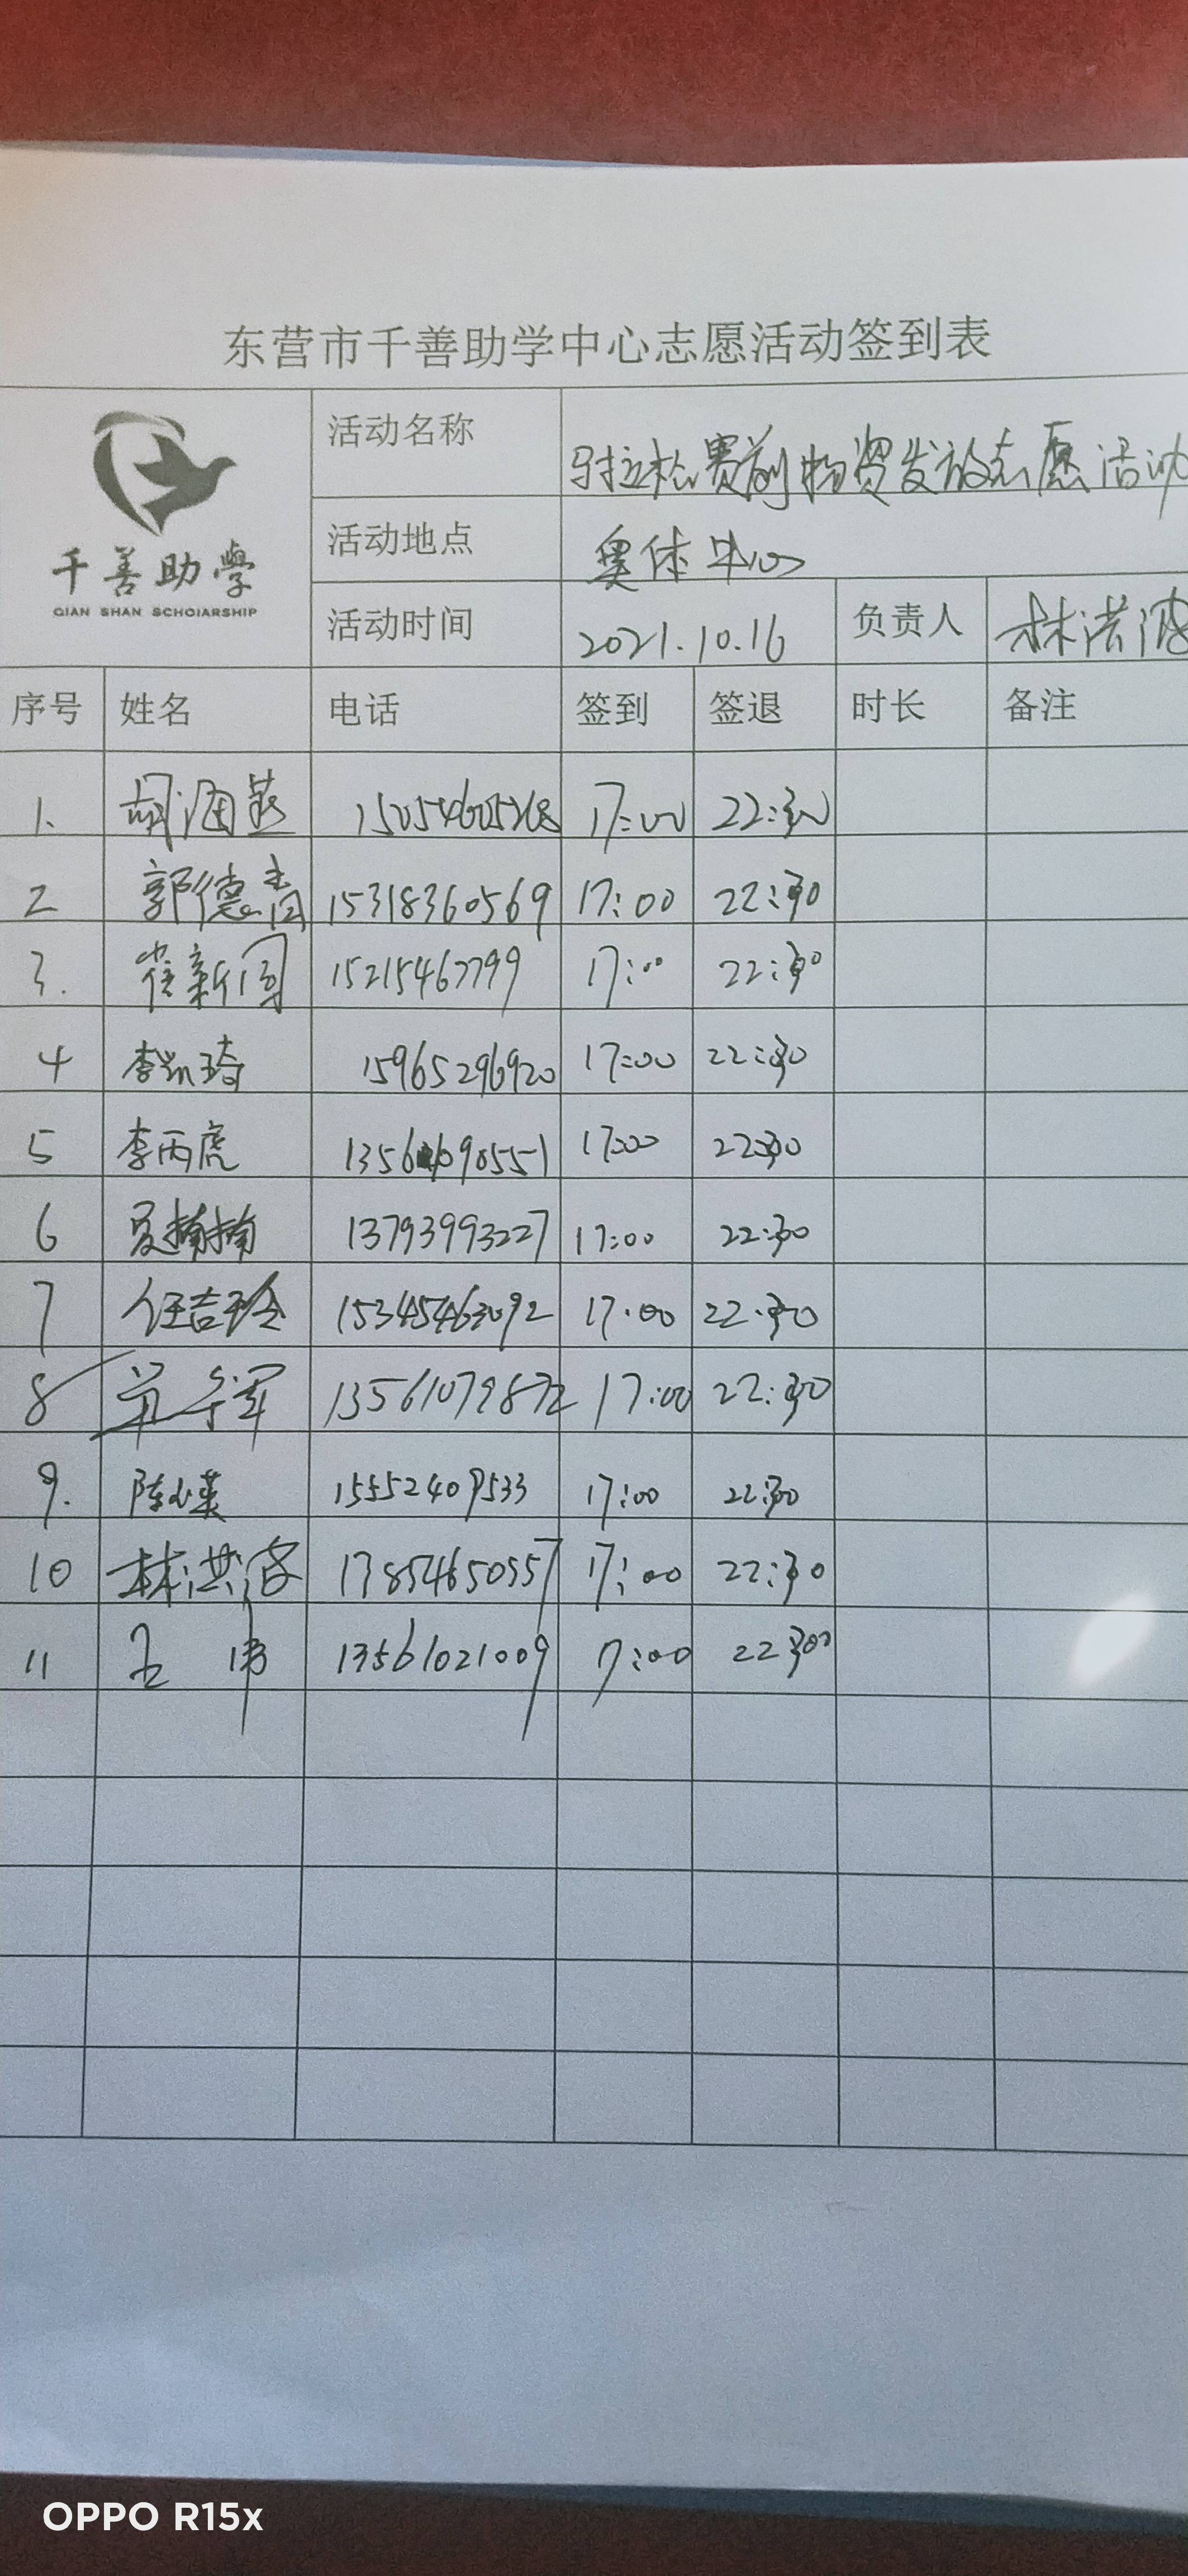 东营市千善助学中心志愿活动签到表
千善助學
QIAN SHAN SCHOIARSHIP
活动名称 马拉松赛前物资发放志愿活动
活动地点 奥体中心
活动时间 2021.10.16 负责人 林洪波
序号 姓名 电话 签到 签退 时长 备注
1. 胡海燕 15054605268 17:00 22:30
2 郭德青 15318360569 17:00 22:30
3. 崔新国 15215467799 17:00 22:30
4 李凯琦 15965296920 17:00 22:30
5 李丙虎 17:00 22:30
6 夏楠楠 13793993227 17:00 22:30
7 任吉玲 15345463092 17:00 22:30
8 13561079872 17:00 22:30
9. 陈小英 15552409533 17:00 22:30
10 林洪波 17854650557 17:00 22:30
11 13561021009 17:00 22:30
OPPO R15x